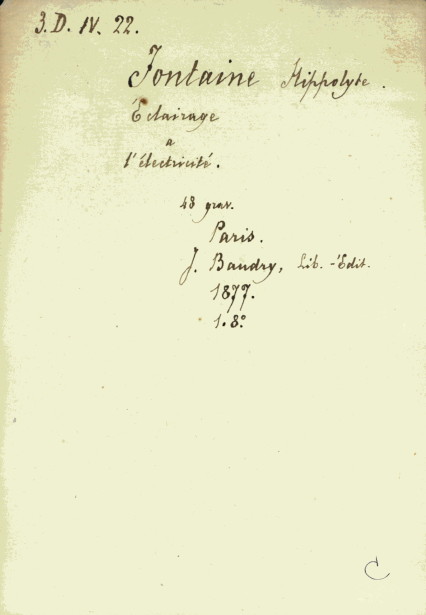 3. D. IV. 22.
Fontaine Hippolyte.
Éclairage
a
l'électricité.
48 grav.
Paris.
J. Baudry, Lib.-Édit.
1877.
1. 8º
C